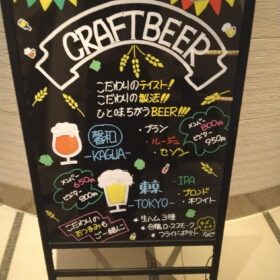 CRAFTBEER
こだわりのテイスト!
こだわりの製法!!
ひと味ちがうBEER!!!
馨和
-KAGUA-
・ブラン
・ルージュ
・セゾン
メンバー 800円
ビジター 950円
メンバー 650円
ビジター 800円
東京
-TOKYO-
・IPA
・ブロンド
・ホワイト
こだわりの
おつまみも
ご一緒に
・生ハム3種
・フライドポテト